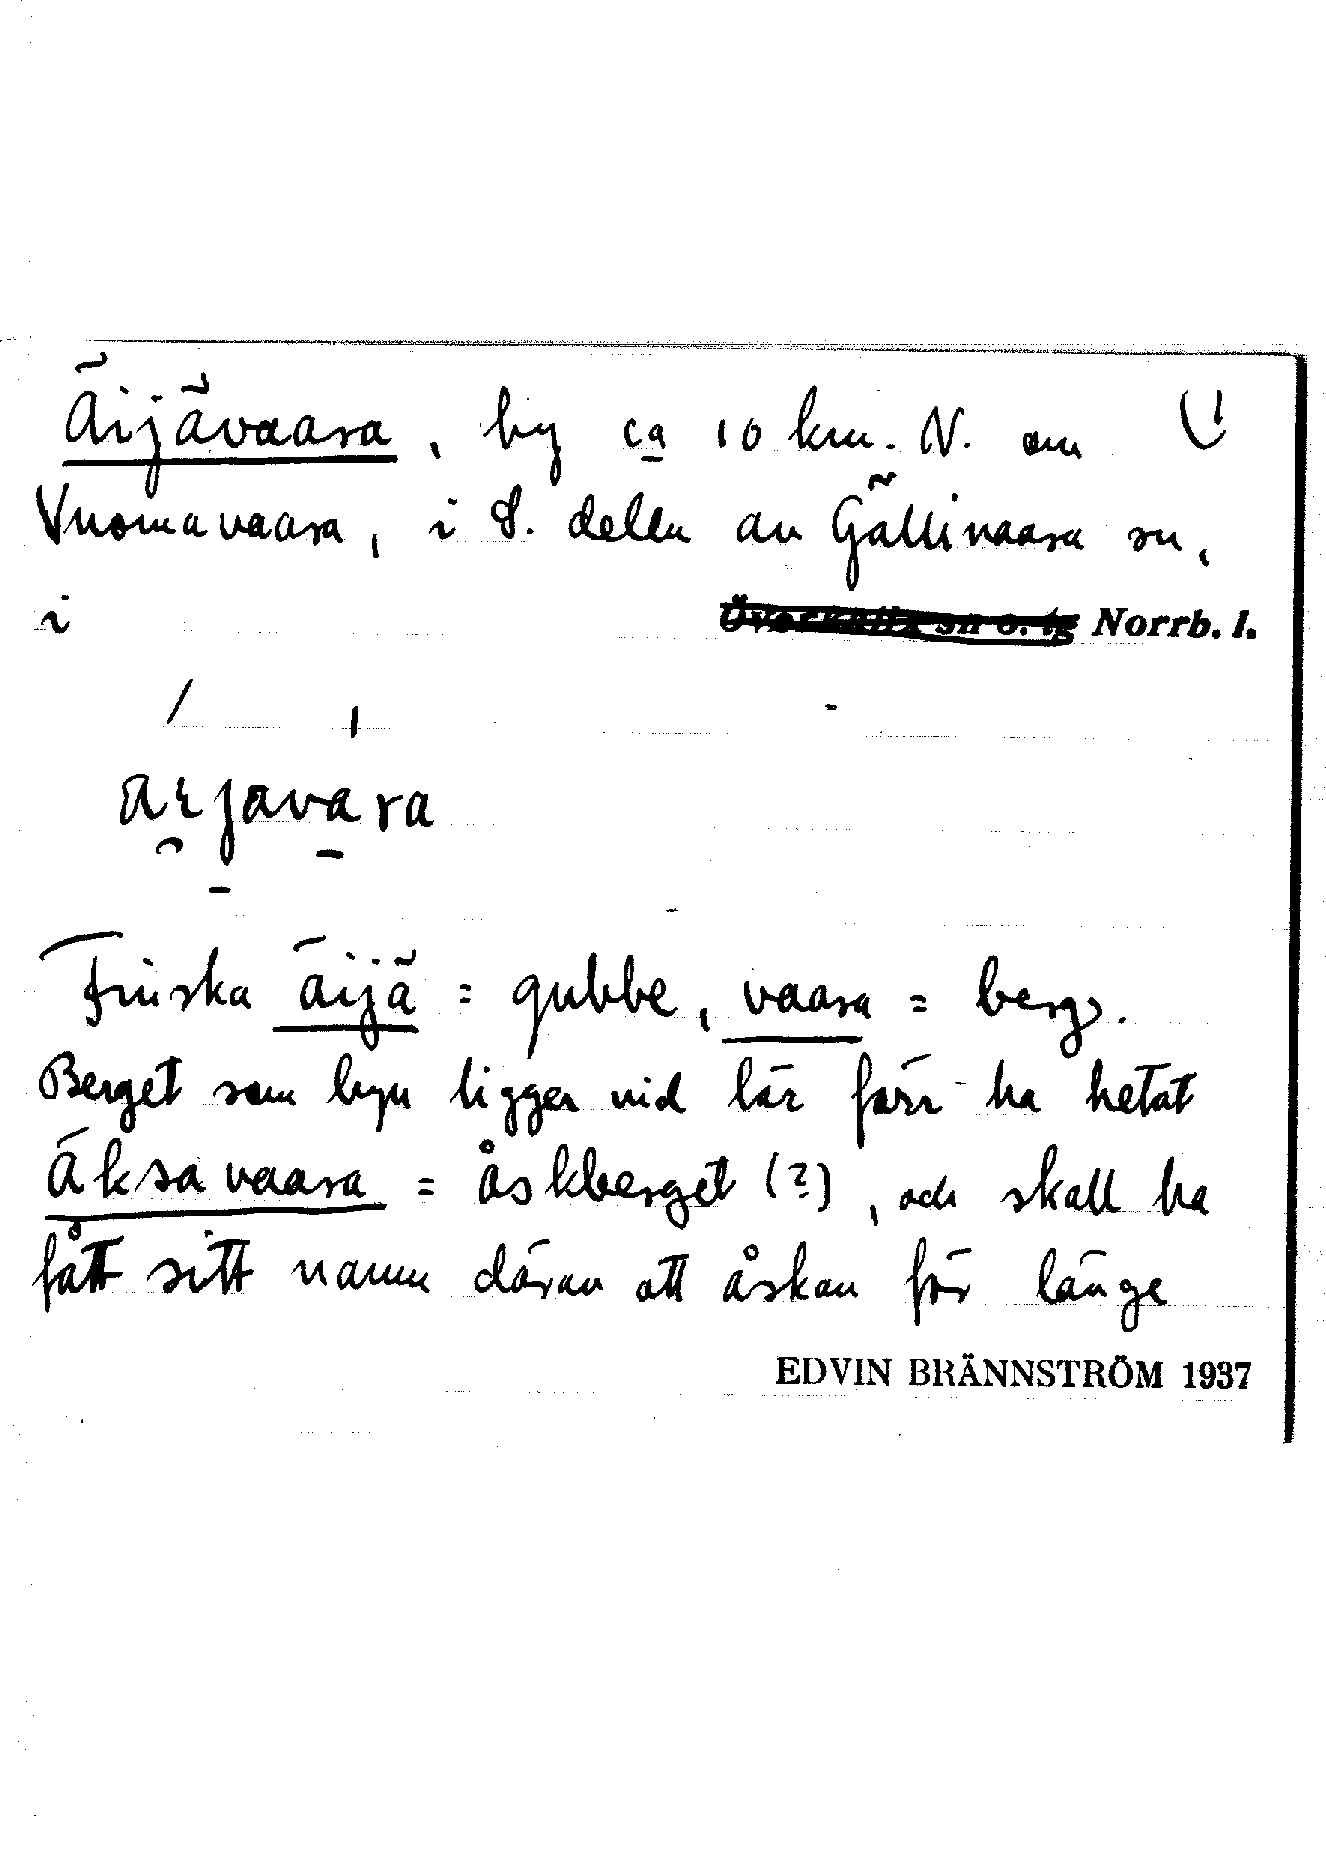 Äijävaara, by ca 10 km. N. om
Vuomavaara, i S. delen av Gällivaara sn,
i Överkalix sn o. tg Norrb. l.
Finska äijä = gubbe, vaara = berg.
Berget som byn ligger vid lär förr ha hetat
Äksavaara = åskberget (?), och skall ha
fått sitt namn därav att åskan för länge
EDVIN BRÄNNSTRÖM 1937